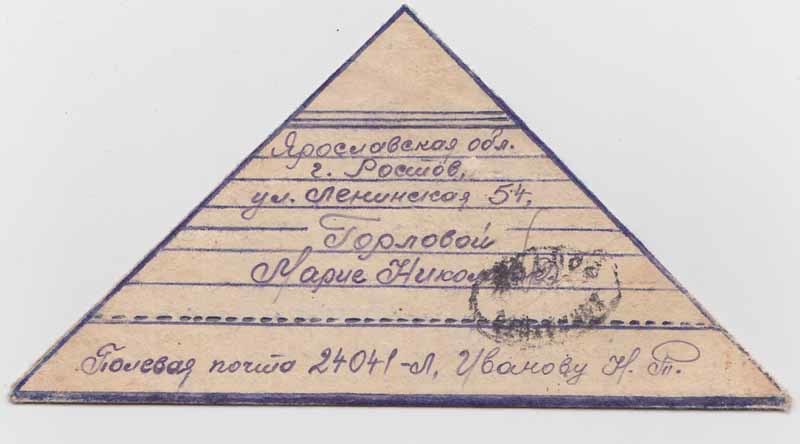 Ярославская обл.
г. Ростов,
ул. Ленинская 54,
Горловой
Марие
Полевая почта 24041-Л, Иванову Н. Т.